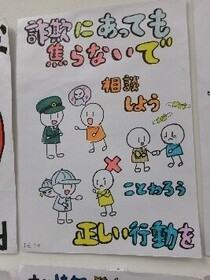 詐欺にあっても
焦らないで
相談
しよう
ことわろう
正しい行動を